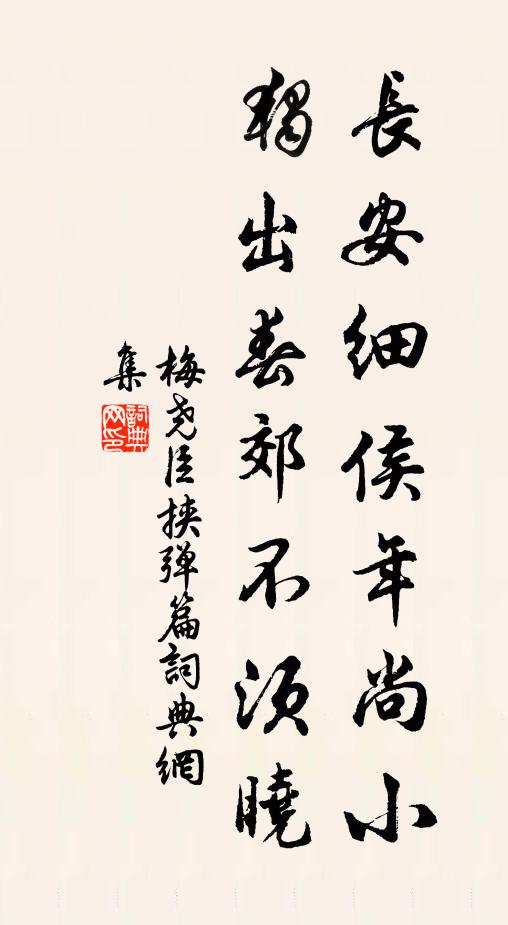 長安細侯年尚小
獨出春郊不須曉
梅尧臣挟弹篇詞典網
集
詞典
网印